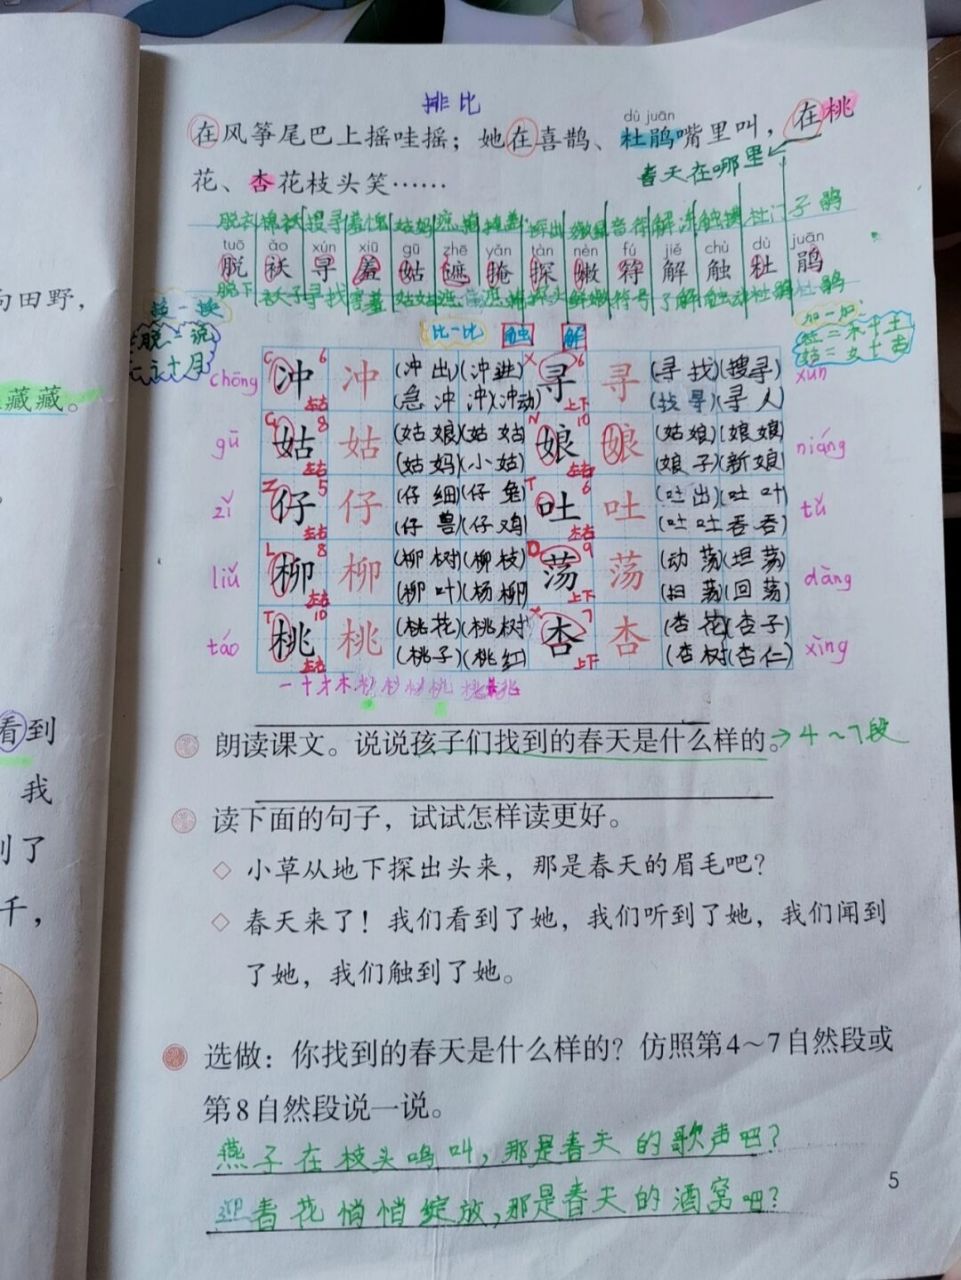 排比
在风筝尾巴上摇哇摇；她在喜鹊、杜鹃嘴里叫，在桃
dù juān
春天在哪里
花、杏花枝头笑……
tuō ǎo xún xiū gū zhē yǎn tàn nèn fú jiě chù dù juān
脱 袄 寻 羞 姑 遮 掩 探 嫩 符 解 触 杜 鹃
脱下 袄子 寻找 害羞 姑姑 探头 符号 了解 触动 杜鹃 杜鹃
换一换
脱——说
比一比 触 解
加一加
杜=木+土
姑=女+古
chōng 冲 冲 (冲出)(冲进) 寻 寻 (寻找)(搜寻) xún
左右 (急冲冲)(冲动) 上下 (找寻)(寻人)
gū 姑 姑 (姑娘)(姑姑) 娘 娘 (姑娘)(娘娘) niáng
左右 (姑妈)(小姑) 左右 (娘子)(新娘)
zǐ 仔 仔 (仔细)(仔兔) 吐 吐 (吐出)(吐叶) tǔ
左右 (仔兽)(仔鸡) 左右 (吐吐吞吞)
liǔ 柳 柳 (柳树)(柳枝) 荡 荡 (动荡)(坦荡) dàng
左右 (柳叶)(杨柳) 上下 (扫荡)(回荡)
táo 桃 桃 (桃花)(桃树) 杏 杏 (杏花)(杏子) xìng
左右 (桃子)(桃红) 上下 (杏树)(杏仁)
朗读课文。说说孩子们找到的春天是什么样的。→4～7段
读下面的句子，试试怎样读更好。
◇ 小草从地下探出头来，那是春天的眉毛吧？
◇ 春天来了！我们看到了她，我们听到了她，我们闻到
了她，我们触到了她。
选做：你找到的春天是什么样的？仿照第4～7自然段或
第8自然段说一说。
燕子在枝头鸣叫，那是春天的歌声吧？
迎春花悄悄绽放，那是春天的酒窝吧？
5
向田野，
藏藏。
看到
我
到了
千，